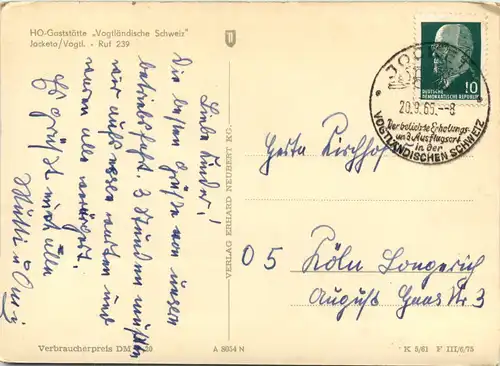 HO-Gaststätte „Vogtländische Schweiz"
Jocketa/Vogtl. - Ruf 239
Liebe Kinder!
Die besten Grüße von unser
betriebsfahrt. 3 Stunden mußten
wir aufs warten und
waren alle
Es grüßt euch alle
Mutti u.
VERLAG ERHARD NEUBERT KG.
DEUTSCHE
DEMOKRATISCHE REPUBLIK
10
20.9.65.-8
Der beliebte Erholungs-
und Ausflugsort
in der
VOGTLÄNDISCHEN SCHWEIZ
Gerta Kirchhof
05 Köln Longerich
August Haas Str 3
Verbraucherpreis DM 20
A 8054 N
K 5/61 F III/6/75